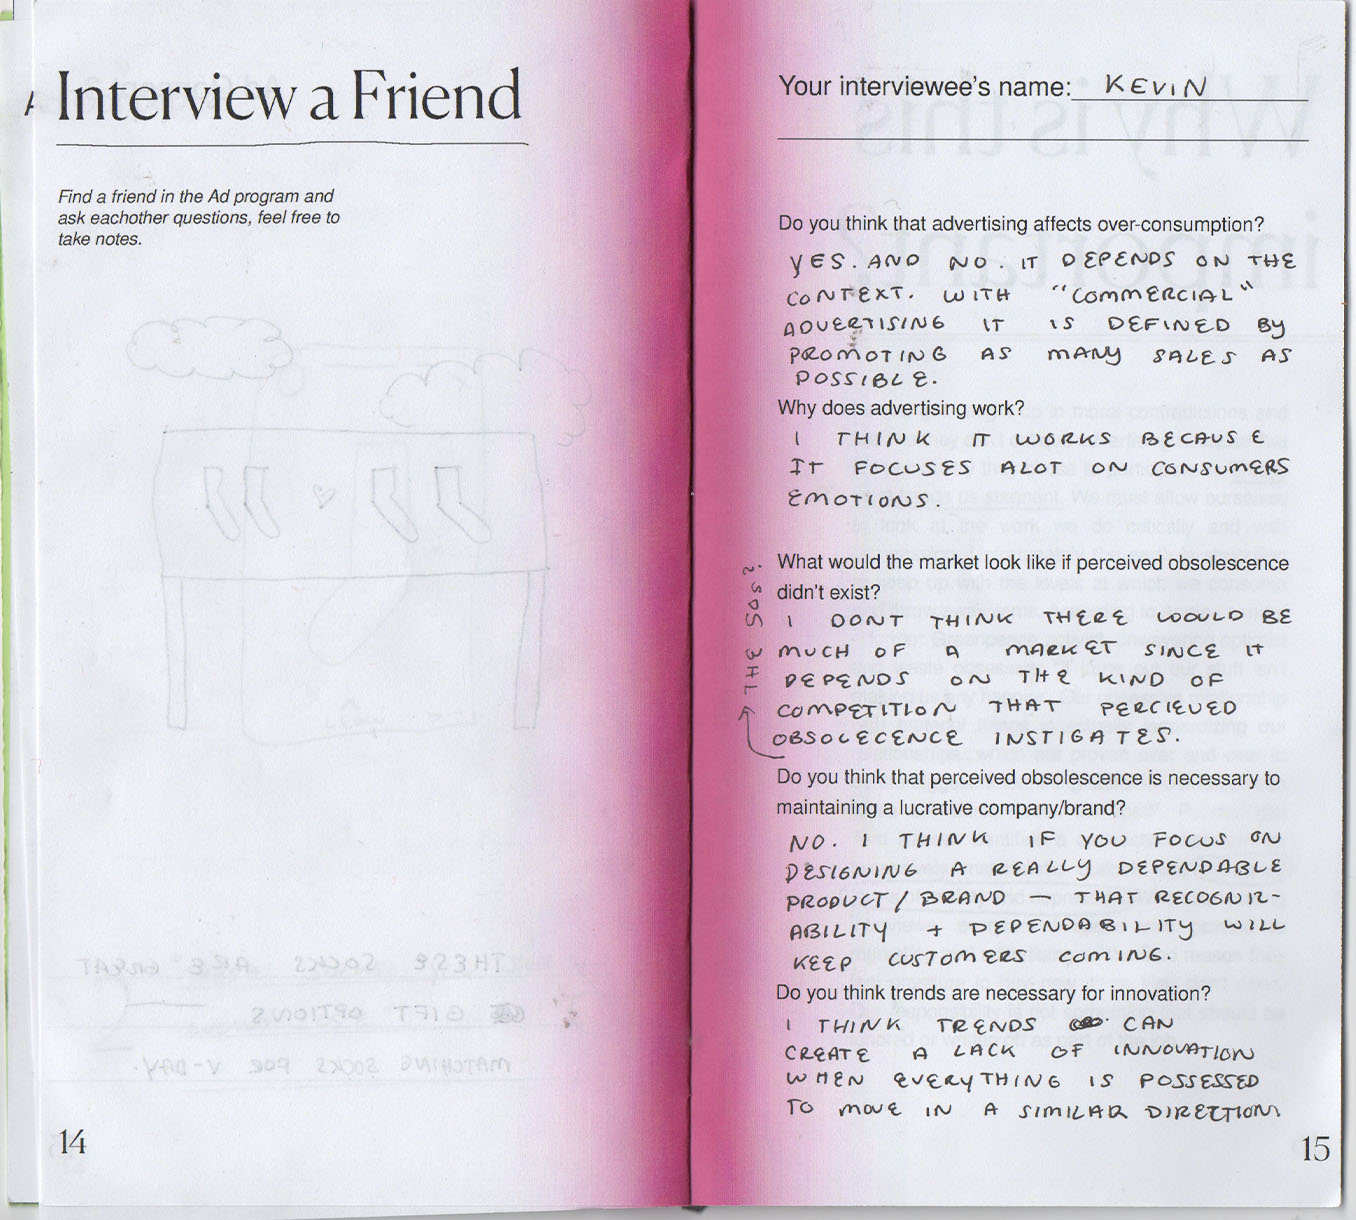 Interview a Friend
Find a friend in the Ad program and
ask eachother questions, feel free to
take notes.
14
Your interviewee's name: KEVIN
Do you think that advertising affects over-consumption?
YES. AND NO. IT DEPENDS ON THE
CONTEXT. WITH "COMMERCIAL"
ADVERTISING IT IS DEFINED BY
PROMOTING AS MANY SALES AS
POSSIBLE.
Why does advertising work?
I THINK IT WORKS BECAUSE
IT FOCUSES ALOT ON CONSUMERS
EMOTIONS.
What would the market look like if perceived obsolescence
didn't exist?
I DONT THINK THERE WOULD BE
MUCH OF A MARKET SINCE IT
DEPENDS ON THE KIND OF
COMPETITION THAT PERCIEVED
OBSOLECENCE INSTIGATES.
THE 50s?
Do you think that perceived obsolescence is necessary to
maintaining a lucrative company/brand?
NO. I THINK IF YOU FOCUS ON
DESIGNING A REALLY DEPENDABLE
PRODUCT/BRAND — THAT RECOGNIZ-
ABILITY + DEPENDABILITY WILL
KEEP CUSTOMERS COMING.
Do you think trends are necessary for innovation?
I THINK TRENDS CAN
CREATE A LACK OF INNOVATION
WHEN EVERYTHING IS POSSESSED
TO MOVE IN A SIMILAR DIRECTION
15
THESE SOCKS ARE GREAT
GIFT OPTIONS
MATCHING SOCKS FOR V-DAY.
Why is this
important?